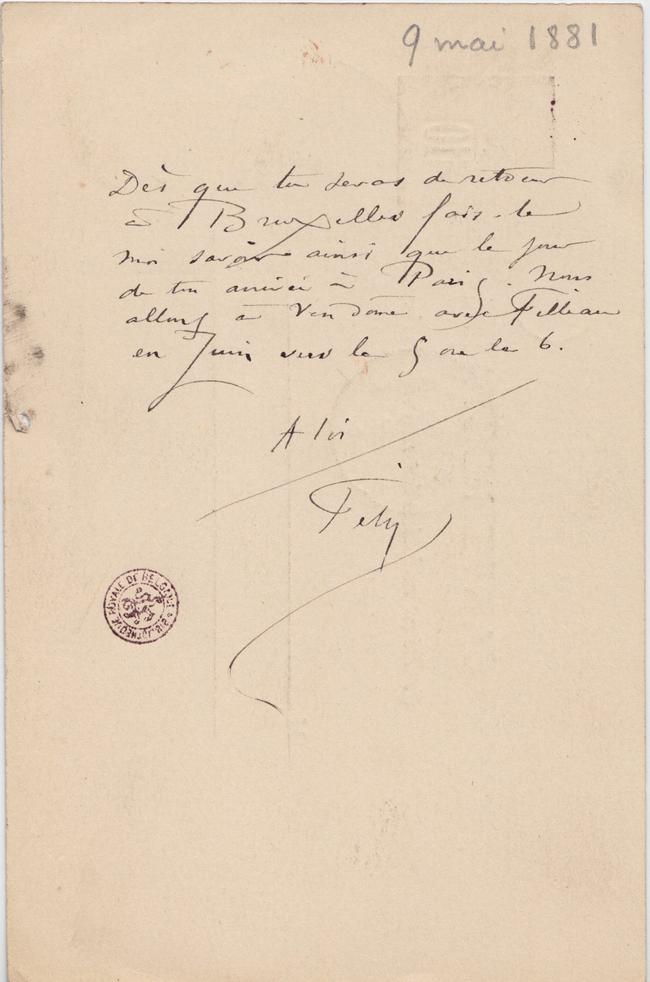 9 mai 1881
Dès que tu seras de retour
à Bruxelles fais-le
moi savoir ainsi que le jour
de ton arrivée à Paris. Nous
allons à Vendôme avec Filleau
en Juin vers le 5 ou le 6.
A toi
Fély
BIBLIOTHÈQUE ROYALE DE BELGIQUE